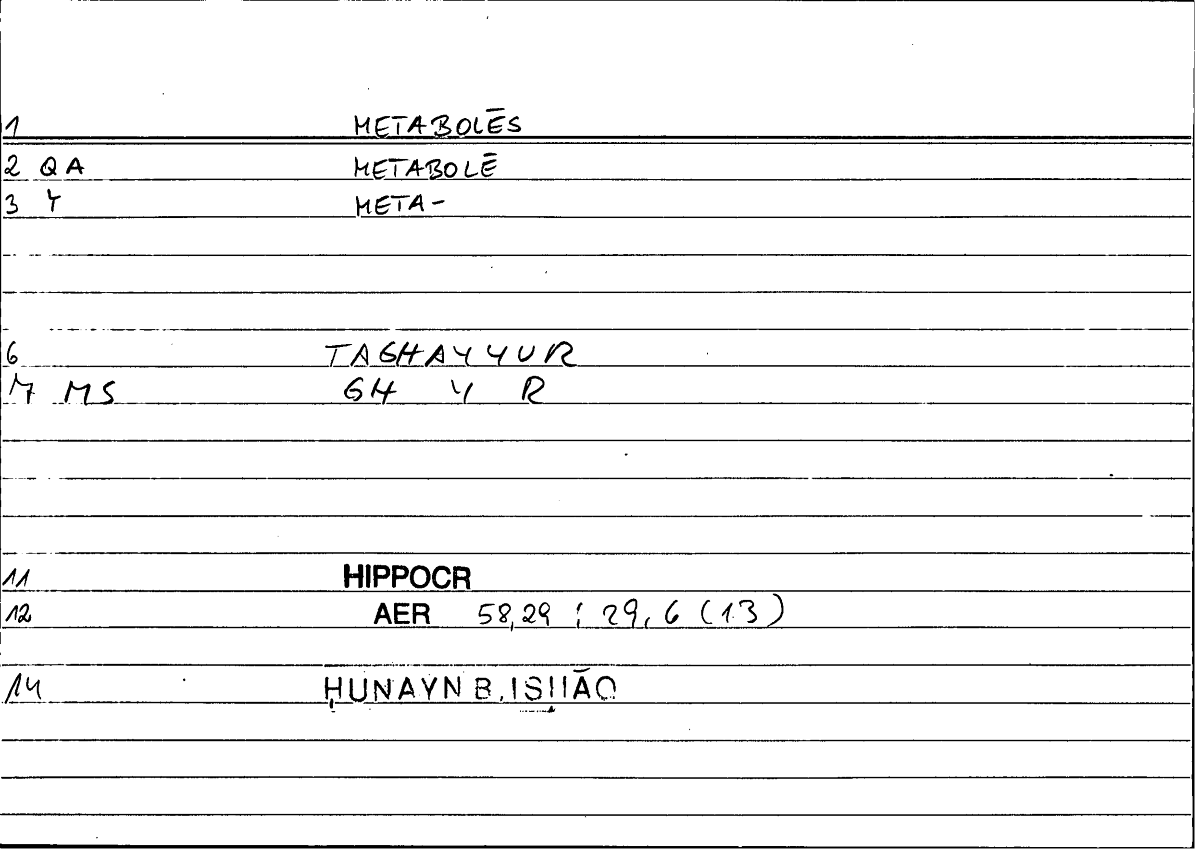 1 METABOLĒS
2 QA METABOLĒ
3 Y META-
6 TAGHAYYUR
7 MS GH Y R
11 HIPPOCR
12 AER 58,29 ; 29,6 (13)
14 ḤUNAYN B. ISḤĀQ